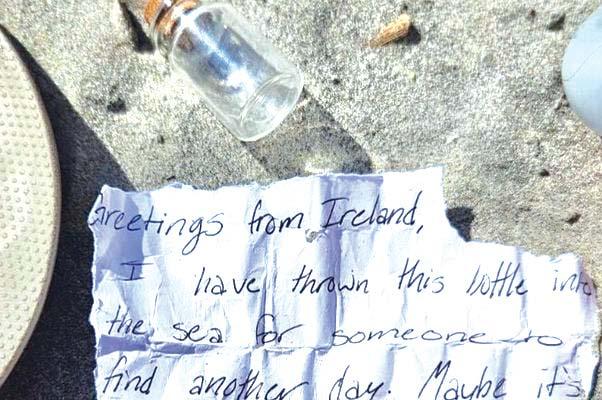 Greetings from Ireland,
I have thrown this bottle into
the sea for someone to
find another day. Maybe it's